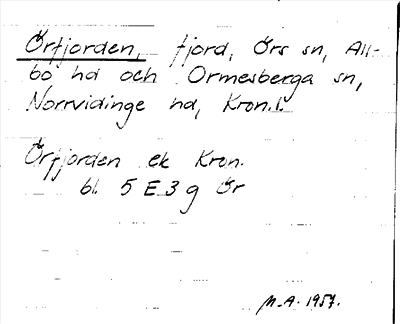 Örfjorden, fjord, Örs sn, All-
bo hd och Ormesberga sn,
Norrvidinge hd, Kron.l.
Örfjorden ek Kron.
bl. 5 E 3 g Ör
M.A. 1957.